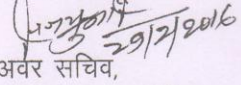 29/2/2016
अवर सचिव,